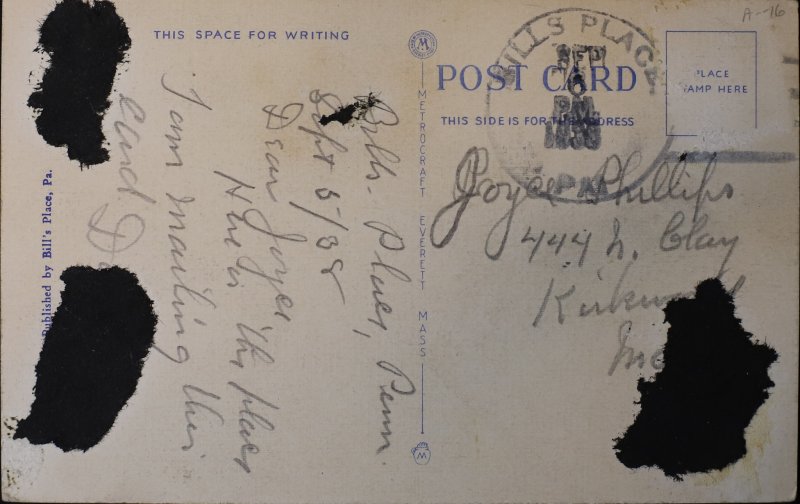 A--16
THIS SPACE FOR WRITING
POST CARD
THIS SIDE IS FOR THE ADDRESS
PLACE
STAMP HERE
BILLS PLACE
SEP
6
PM
1938
PA.
METROCRAFT EVERETT MASS
Published by Bill's Place, Pa.
Bills. Place, Penn.
Sept 5/38
Dear Joyce
this place
I am mailing this
card
Joyce Phillips
444 N. Clay
Kirkwood
Mo